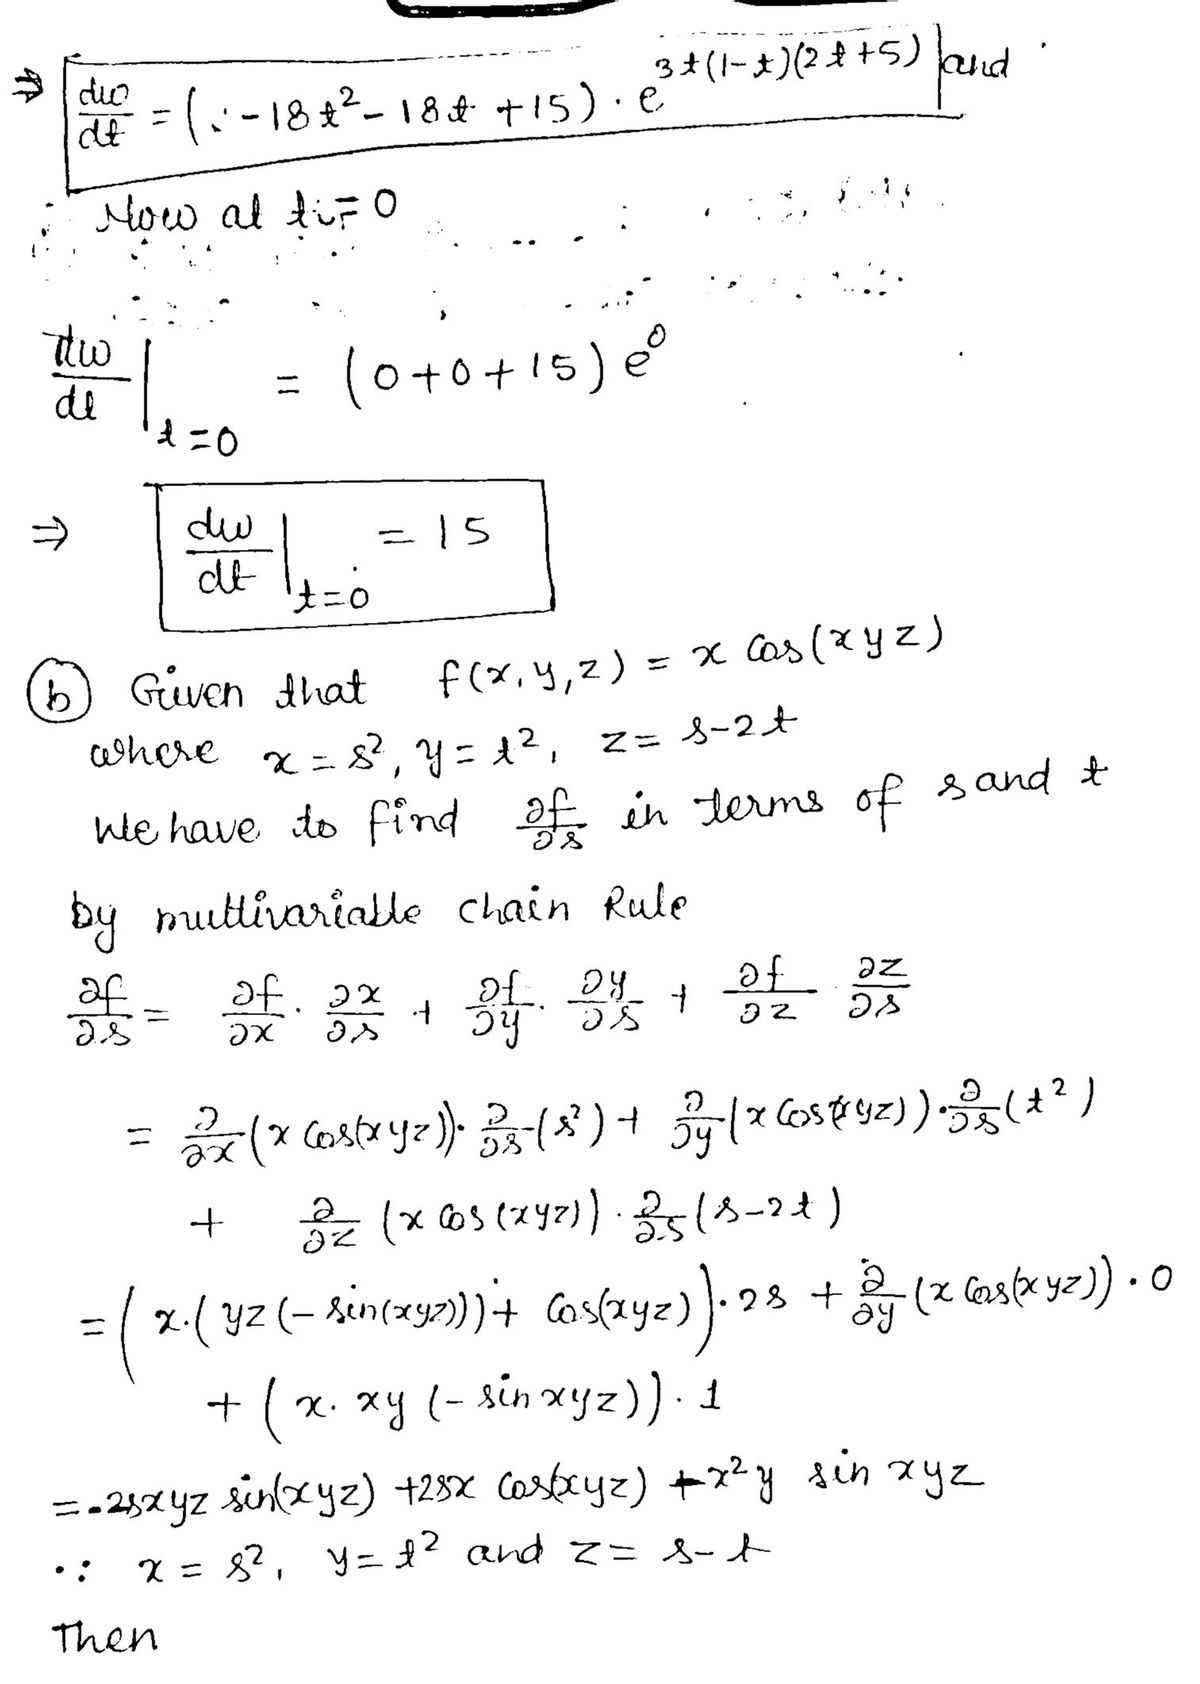 ⇒ dw/dt = (-18t² - 18t + 15) · e^{3t(1-t)(2t+5)} and
Now at t = 0
dw/dt |_{t=0} = (0+0+15) e⁰
⇒ dw/dt |_{t=0} = 15
(b) Given that f(x,y,z) = x cos(xyz)
where x = s², y = t², z = s-2t
We have to find ∂f/∂s in terms of s and t
by multivariable chain Rule
∂f/∂s = ∂f/∂x · ∂x/∂s + ∂f/∂y · ∂y/∂s + ∂f/∂z · ∂z/∂s
= ∂/∂x (x cos(xyz)) · ∂/∂s (s²) + ∂/∂y (x cos(xyz)) · ∂/∂s (t²)
+ ∂/∂z (x cos(xyz)) · ∂/∂s (s-2t)
= (x·(yz(-sin(xyz))) + cos(xyz)) · 2s + ∂/∂y (x cos(xyz)) · 0
+ (x · xy (-sin xyz)) · 1
= -2sxyz sin(xyz) + 2sx cos(xyz) + x²y sin xyz
∵ x = s², y = t² and z = s-t
Then